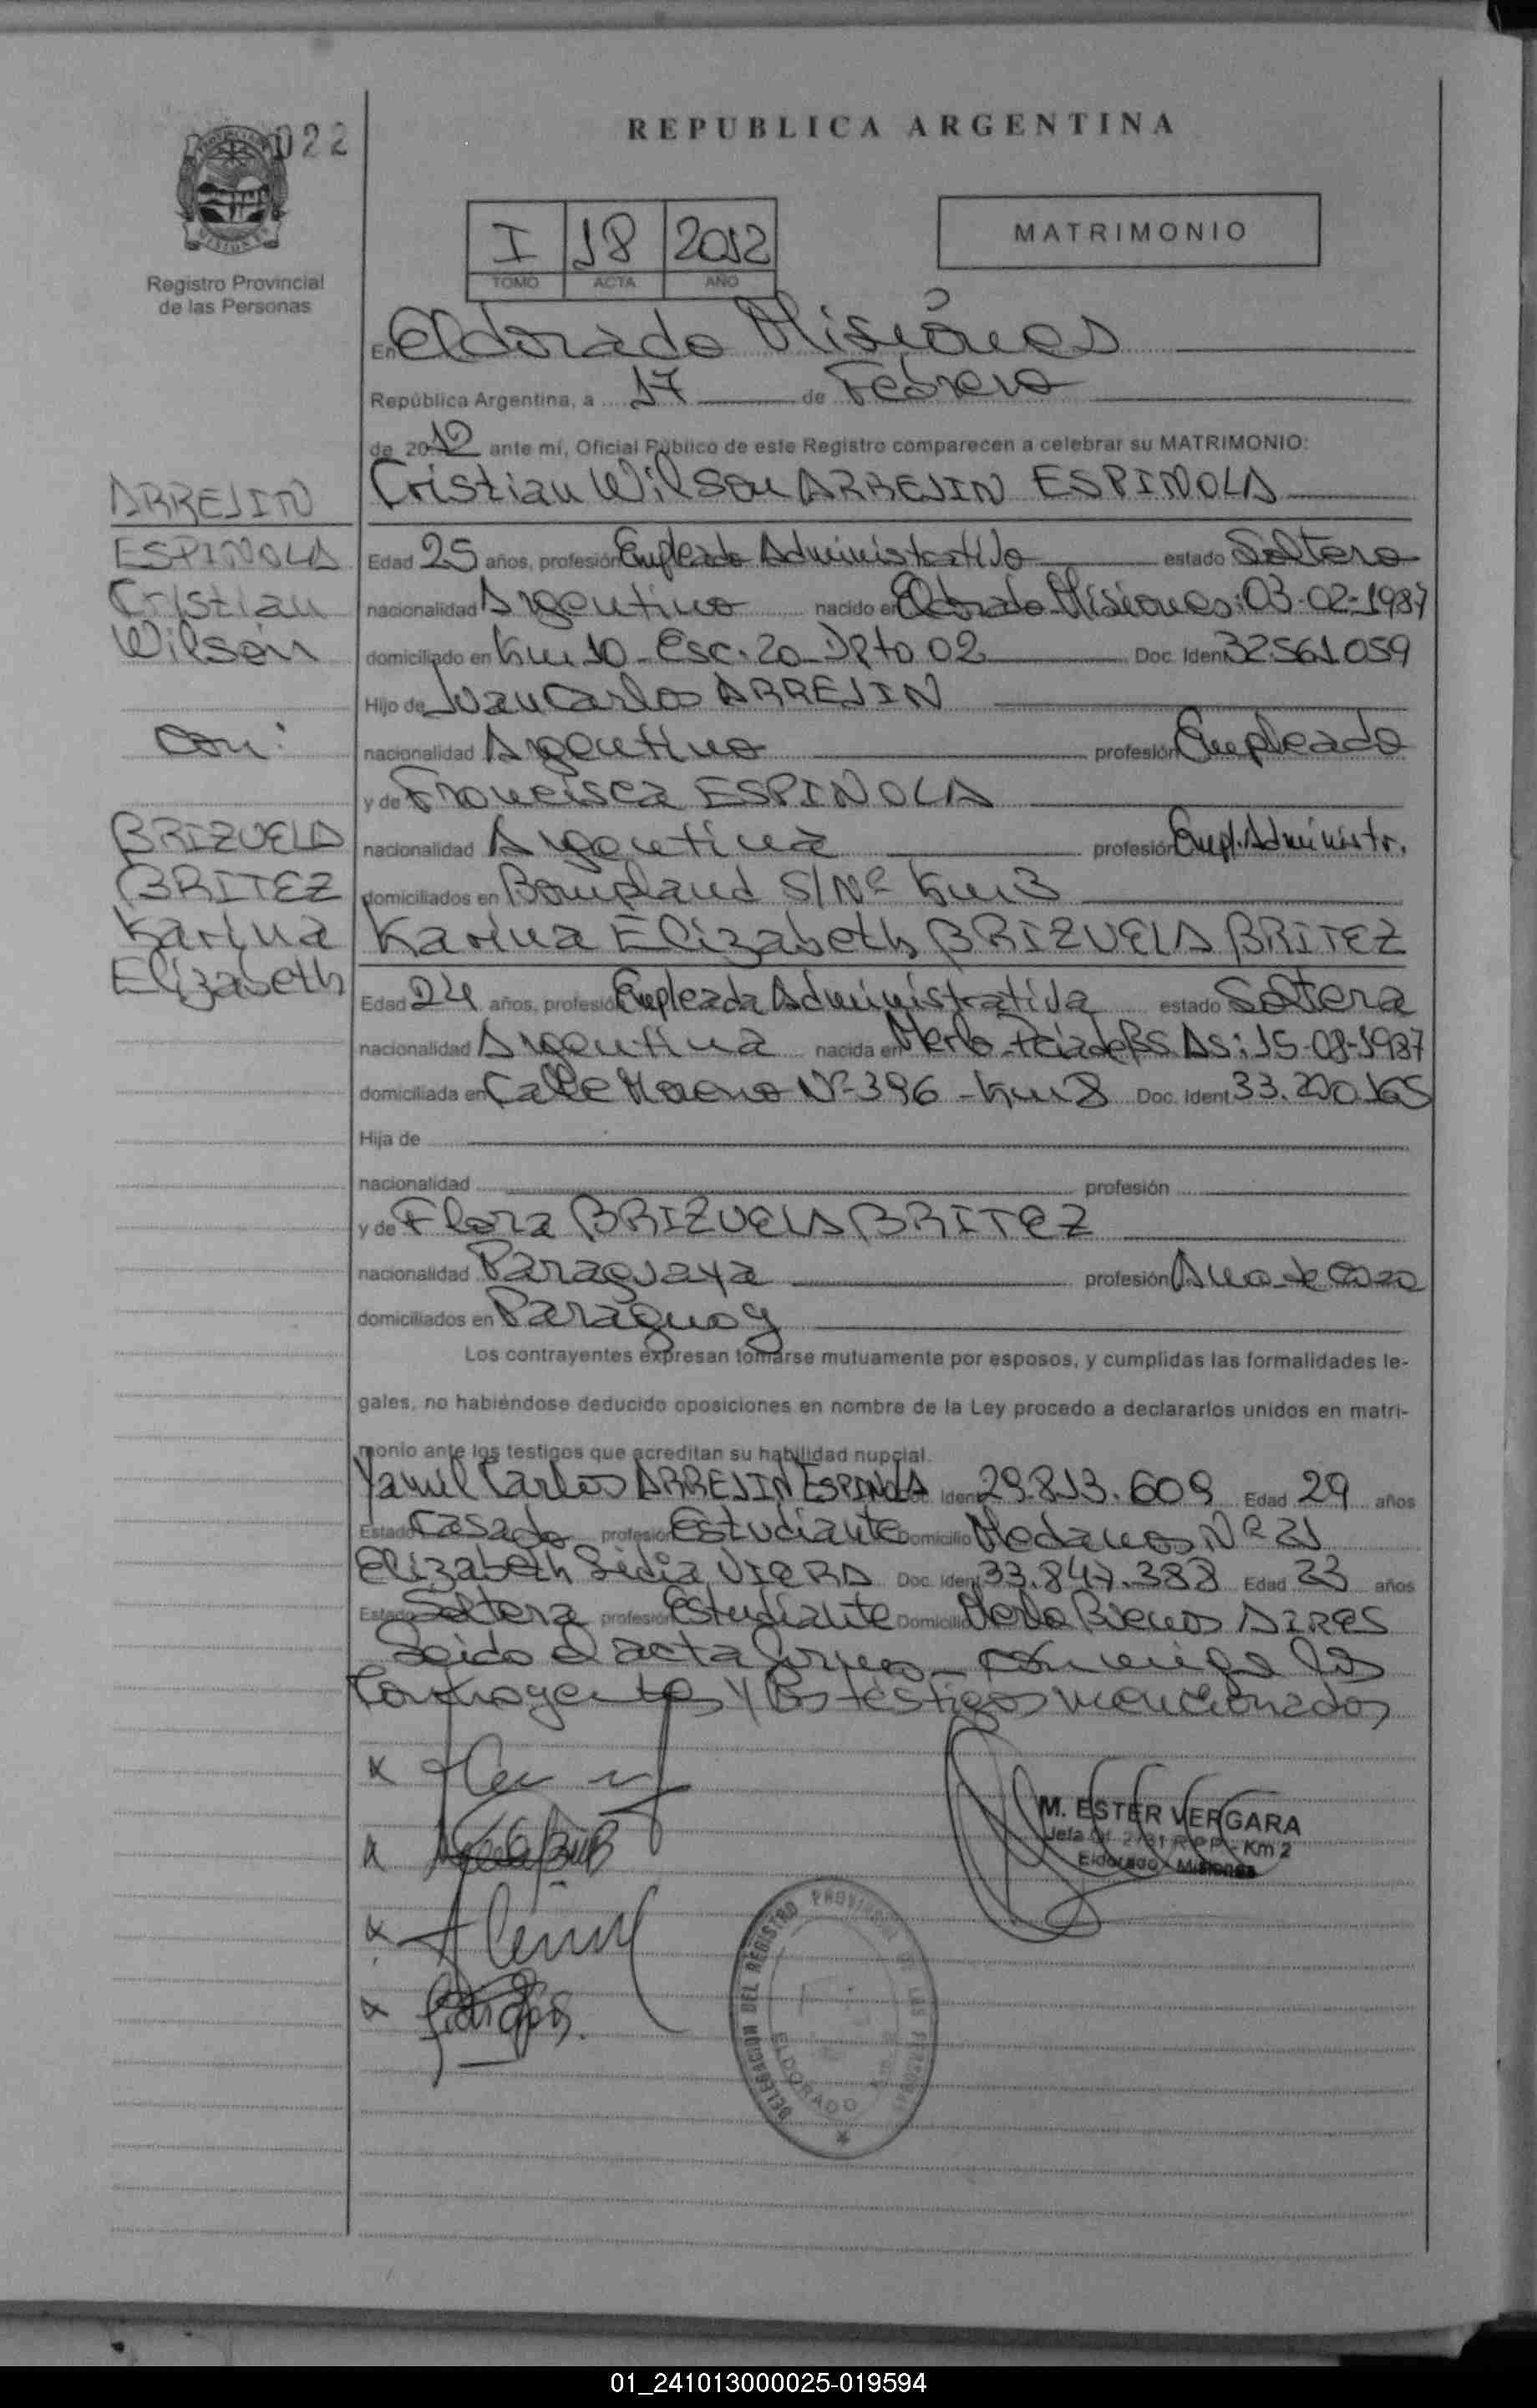 022
REPUBLICA ARGENTINA
Registro Provincial
de las Personas
I 18 2012
TOMO ACTA AÑO
MATRIMONIO
En Eldorado Misiones
República Argentina, a 17 de Febrero
de 2012 ante mí, Oficial Público de este Registro comparecen a celebrar su MATRIMONIO:
Cristian Wilson ARREJIN ESPINOLA
ARREJIN
ESPINOLA
Cristian
Wilson
con:
BRIZUELA
BRITEZ
Karina
Elizabeth
Edad 25 años, profesión Empleado Administrativo estado Soltero
nacionalidad Argentino nacido en Eldorado Misiones: 03-02-1987
domiciliado en Km 10 - Esc. 20 - Dpto 02 Doc. Ident. 32561059
Hijo de Juan Carlos ARREJIN
nacionalidad Argentino profesión Empleado
y de Francisca ESPINOLA
nacionalidad Argentina profesión Empl. Administr.
domiciliados en Bompland S/Nº Km 3
Karina Elizabeth BRIZUELA BRITEZ
Edad 24 años, profesión Empleada Administrativa estado Soltera
nacionalidad Argentina nacida en Merlo - Pcia de Bs. As: 15-08-1987
domiciliada en Calle Moreno Nº 396 - Km 8 Doc. Ident. 33.290.165
Hija de
nacionalidad profesión
y de Flora BRIZUELA BRITEZ
nacionalidad Paraguaya profesión Ama de casa
domiciliados en Paraguay
Los contrayentes expresan tomarse mutuamente por esposos, y cumplidas las formalidades le-
gales, no habiéndose deducido oposiciones en nombre de la Ley procedo a declararlos unidos en matri-
monio ante los testigos que acreditan su habilidad nupcial.
Yamil Carlos ARREJIN ESPINOLA Doc. Ident. 29.813.609 Edad 29 años
Estado Casado profesión Estudiante Domicilio Medanos Nº 21
Elizabeth Lidia VIERA Doc. Ident. 33.847.388 Edad 23 años
Estado Soltera profesión Estudiante Domicilio Merlo Buenos AIRES
Leido el acta firman conmigo los
Contrayentes y los testigos mencionados
M. ESTER VERGARA
Jefa Of. 2731 R.P.P. - Km 2
Eldorado - Misiones
DELEGACION DEL REGISTRO PROVINCIAL DE LAS PERSONAS
ELDORADO
01_241013000025-019594